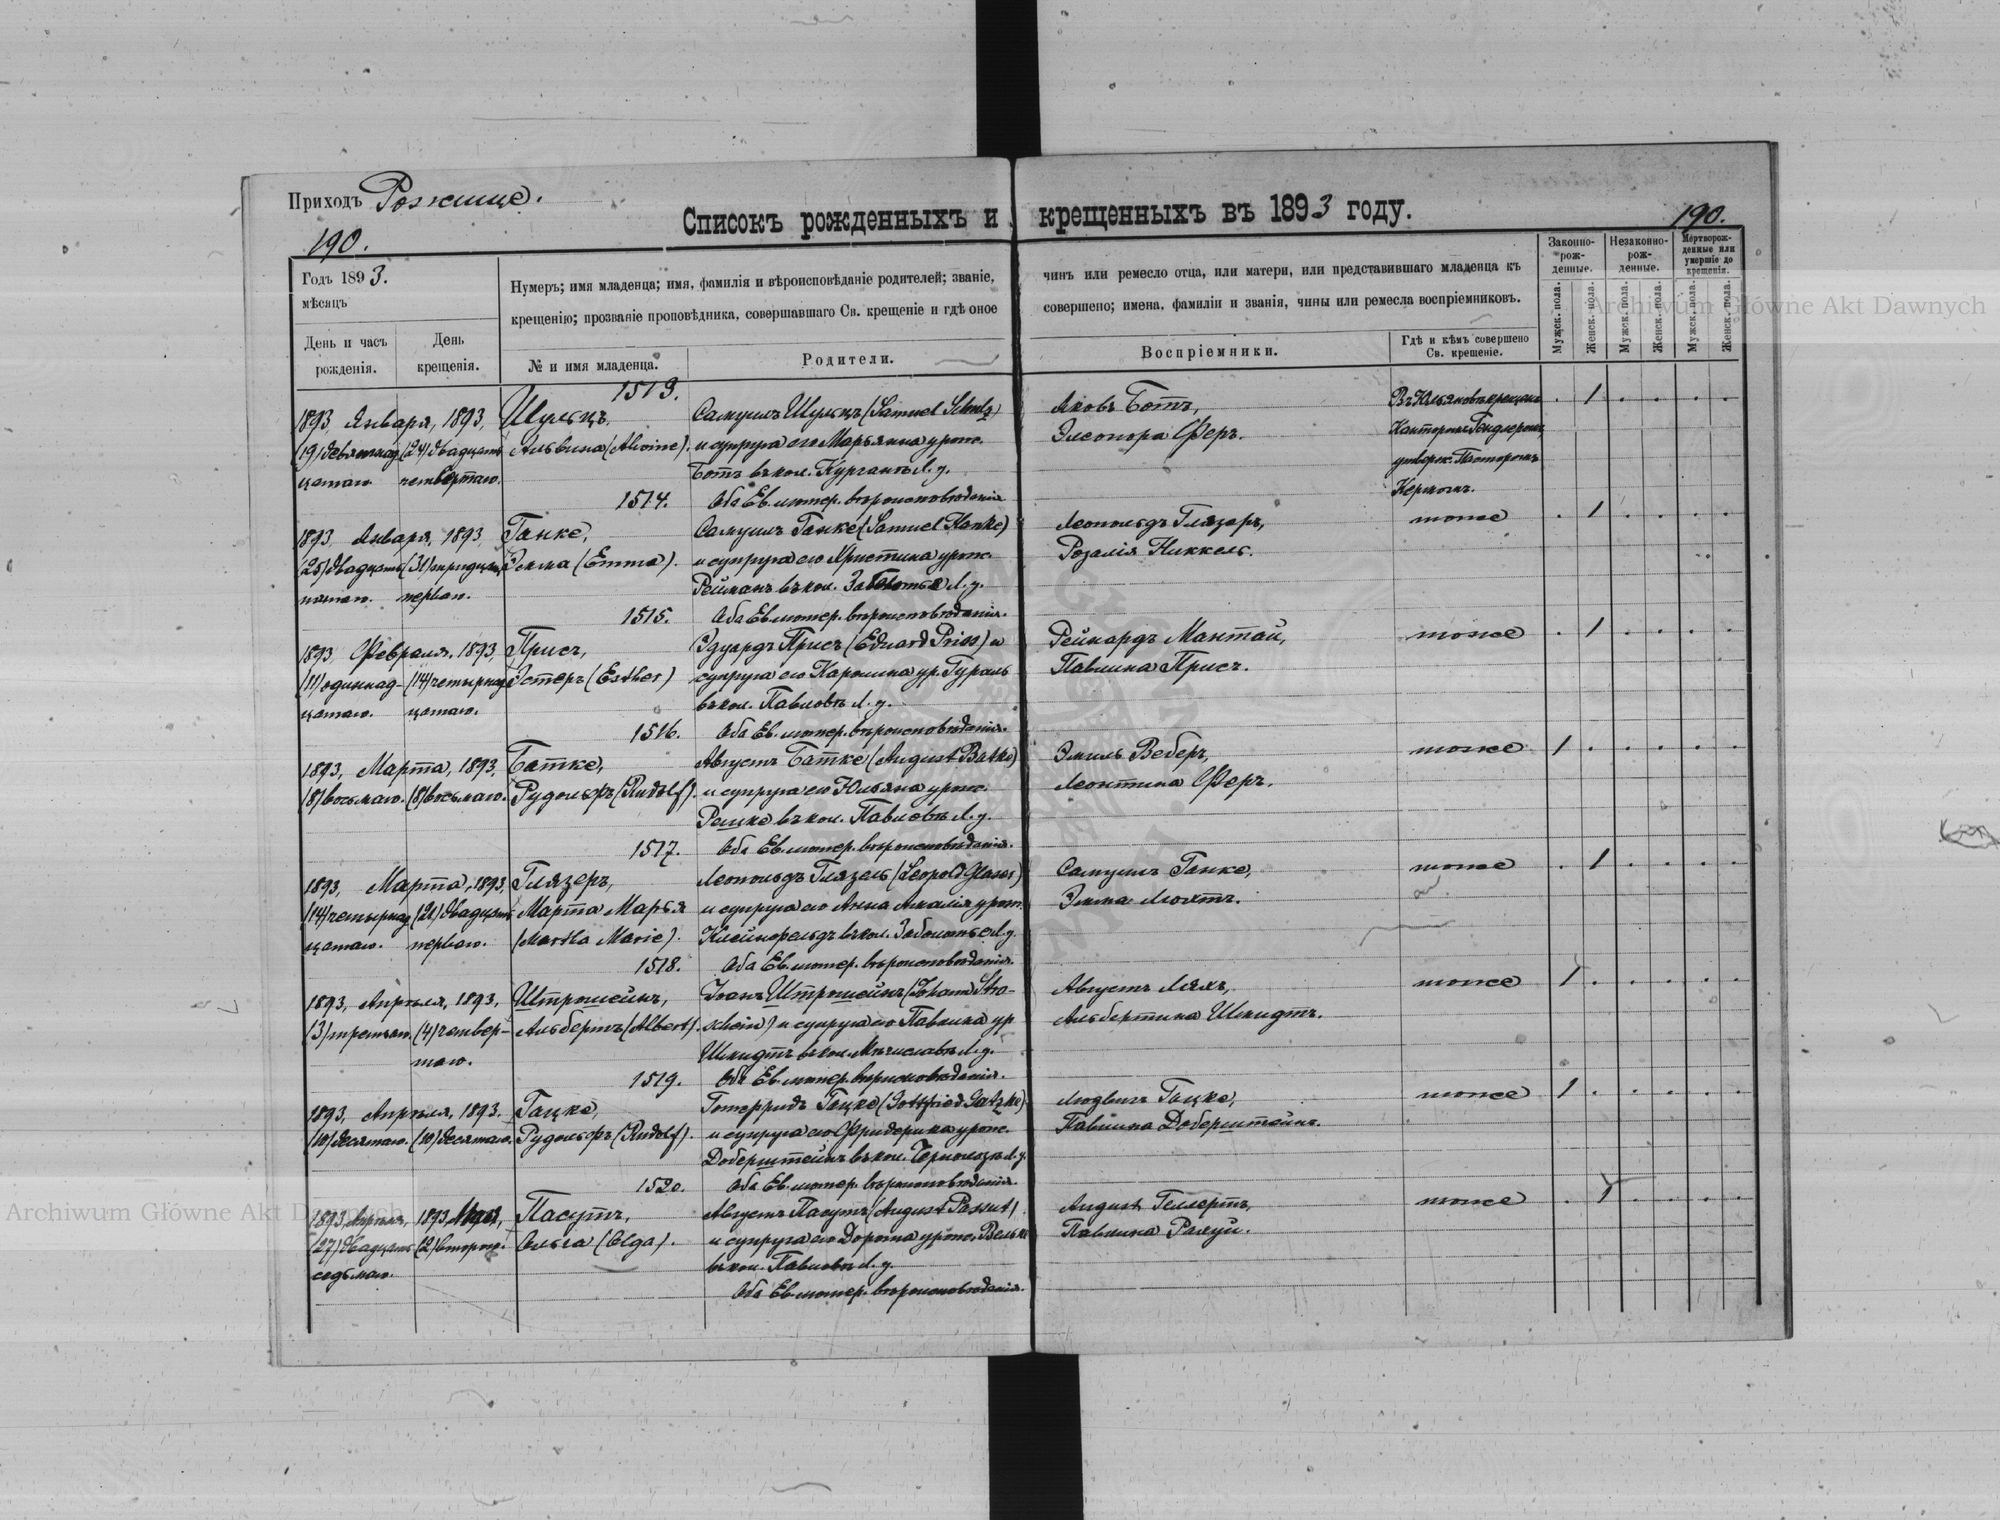 Приходъ Рожище.
Списокъ рожденныхъ и крещенныхъ въ 1893 году.
190.
190.
Годъ 1893.
мѣсяцъ
День и часъ рожденія.
День крещенія.
Нумеръ; имя младенца; имя, фамилія и вѣроисповѣданіе родителей; званіе, чинъ или ремесло отца, или матери, или представившаго младенца къ
крещенію; прозваніе проповѣдника, совершавшаго Св. крещеніе и гдѣ оное совершено; имена, фамиліи и званія, чины или ремесла воспріемниковъ.
№ и имя младенца.
Родители.
Воспріемники.
Гдѣ и кѣмъ совершено Св. крещеніе.
Законно-рож-денные.
Незаконно-рож-денные.
Мертворож-денные или умершіе до крещенія.
Мужск. пола.
Женск. пола.
Мужск. пола.
Женск. пола.
Мужск. пола.
Женск. пола.
1513.
1893, Января, 1893, Шульцъ, Самуилъ Шульцъ (Samuel Schulz) Яковъ Ботъ,
(19) девятнад- (24) двадцать Альвина (Alwine). и супруга его Марьянна урож. Элеонора Феръ. Канторомъ
цатаго. четвертаго. Ботъ въ кол. Курганъ Л. у. утвержд. Пасторомъ
1514. Оба Ев. лютер. вѣроисповѣданія. Керномъ.
1893, Января, 1893, Ганке, Самуилъ Ганке (Samuel Hanke) Леопольдъ Глязеръ, тоже
(25) двадцать (31) тридцать Эмма (Emma). и супруга его Христина урож. Розалія Никкель.
пятаго. перваго. Рейманъ въ кол. Заболотье Л. у.
1515. Оба Ев. лютер. вѣроисповѣданія.
1893, Февраля, 1893, Присъ, Эдуардъ Присъ (Eduard Pries) и Рейнардъ Мантай, тоже
(11) одиннад- (14) четырнад Эстеръ (Esther) супруга его Каролина ур. Гураль Павлина Присъ.
цатаго. цатаго. въ кол. Павловъ Л. у.
1516. Оба Ев. лютер. вѣроисповѣданія.
1893, Марта, 1893, Батке, Августъ Батке (August Batke) Эмиль Веберъ, тоже
(8) восьмаго. (8) восьмаго. Рудольфъ (Rudolf). и супруга его Юльяна урож. Леонтина Феръ.
Решке въ кол. Павловъ Л. у.
1517. Оба Ев. лютер. вѣроисповѣданія.
1893, Марта, 1893, Глязеръ, Леопольдъ Глязель (Leopold Glaser) Самуилъ Ганке, тоже
(14) четырнад (21) двадцать Марта Марья и супруга его Анна Амалія урож.
цатаго. перваго. (Martha Marie). Клейнфельдъ въ кол. Заболотье Л. у.
1518. Оба Ев. лютер. вѣроисповѣданія.
1893, Апрѣля, 1893, Штрошейнъ, Іоанъ Штрошейнъ (Johann Stro- Августъ Ляхъ, тоже
(3) третьяго. (4) четвер- Альбертъ (Albert). schein) и супруга его Павлина ур. Альбертина Шмидтъ.
таго. Шмидтъ въ кол. Мечиславъ Л. у.
1519. Оба Ев. лютер. вѣроисповѣданія.
1893, Апрѣля, 1893. Гацке, Готфридъ Гацке (Gottfried Gatzke) Людвигъ Гацке, тоже
(10) десятаго. (10) десятаго. Рудольфъ (Rudolf). и супруга его Фридерика урож. Павлина Доберштейнъ.
Доберштейнъ въ кол. Л. у.
1520. Оба Ев. лютер. вѣроисповѣданія.
1893, Апрѣля, 1893, Мая, Пасутъ, Августъ Пасутъ (August Passut) August Геллертъ, тоже
(27) двадцать (2) втораго. Ольга (Olga). и супруга его Дорота урож. Павлина
седьмаго. въ кол. Павловъ Л. у.
Оба Ев. лютер. вѣроисповѣданія.
Archiwum Główne Akt Dawnych
Archiwum Główne Akt Dawnych